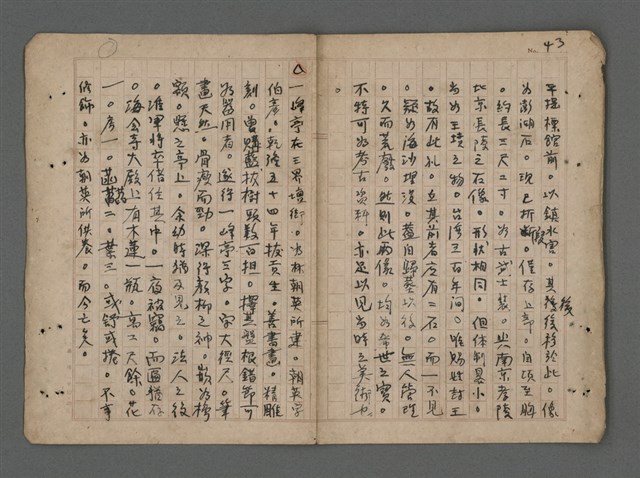 No. 43
平提標館前。以鎮水害。其後移於此。像
後
為澎湖石。現已折斷。僅存上部。自頭至胸
毀
。約長三尺二寸。為古武士裝。與南京孝陵
北京長陵之石像。形狀相同。但体制畧小。
當為王墳之物。台灣三百年间。唯賜姓封王
。故有此礼。立其前者定有二石。而一不見
。疑為海沙埋沒。蓋自歸葬以後。無人管理
。久而荒廢。然則此兩像。均為希世之寶。
不特可為考古資料。亦足以見當時之美術也
。
一峰亭在三界壇街。為林朝英所建。朝英字
伯彥。乾隆五十四年拔貢生。善書畫。精雕
刻。曾購舊拔樹頭數百担。擇其盤根錯節可
為器用者。邀行一峰亭三字。字大徑尺。筆
畫天然。骨瘦而勁。深得顏柳之神。嵌為樗
額。懸之亭上。余幼時猶及見之。法人之役
。淮軍將卒借住其中。一宿被竊。而匾猶存
。海会寺大殿上有木蓮一瓶。高二尺餘。花
一。彥一。菡萏二。葉三。或舒或捲。不事
修飾。亦為朝英所供養。而今亡矣。